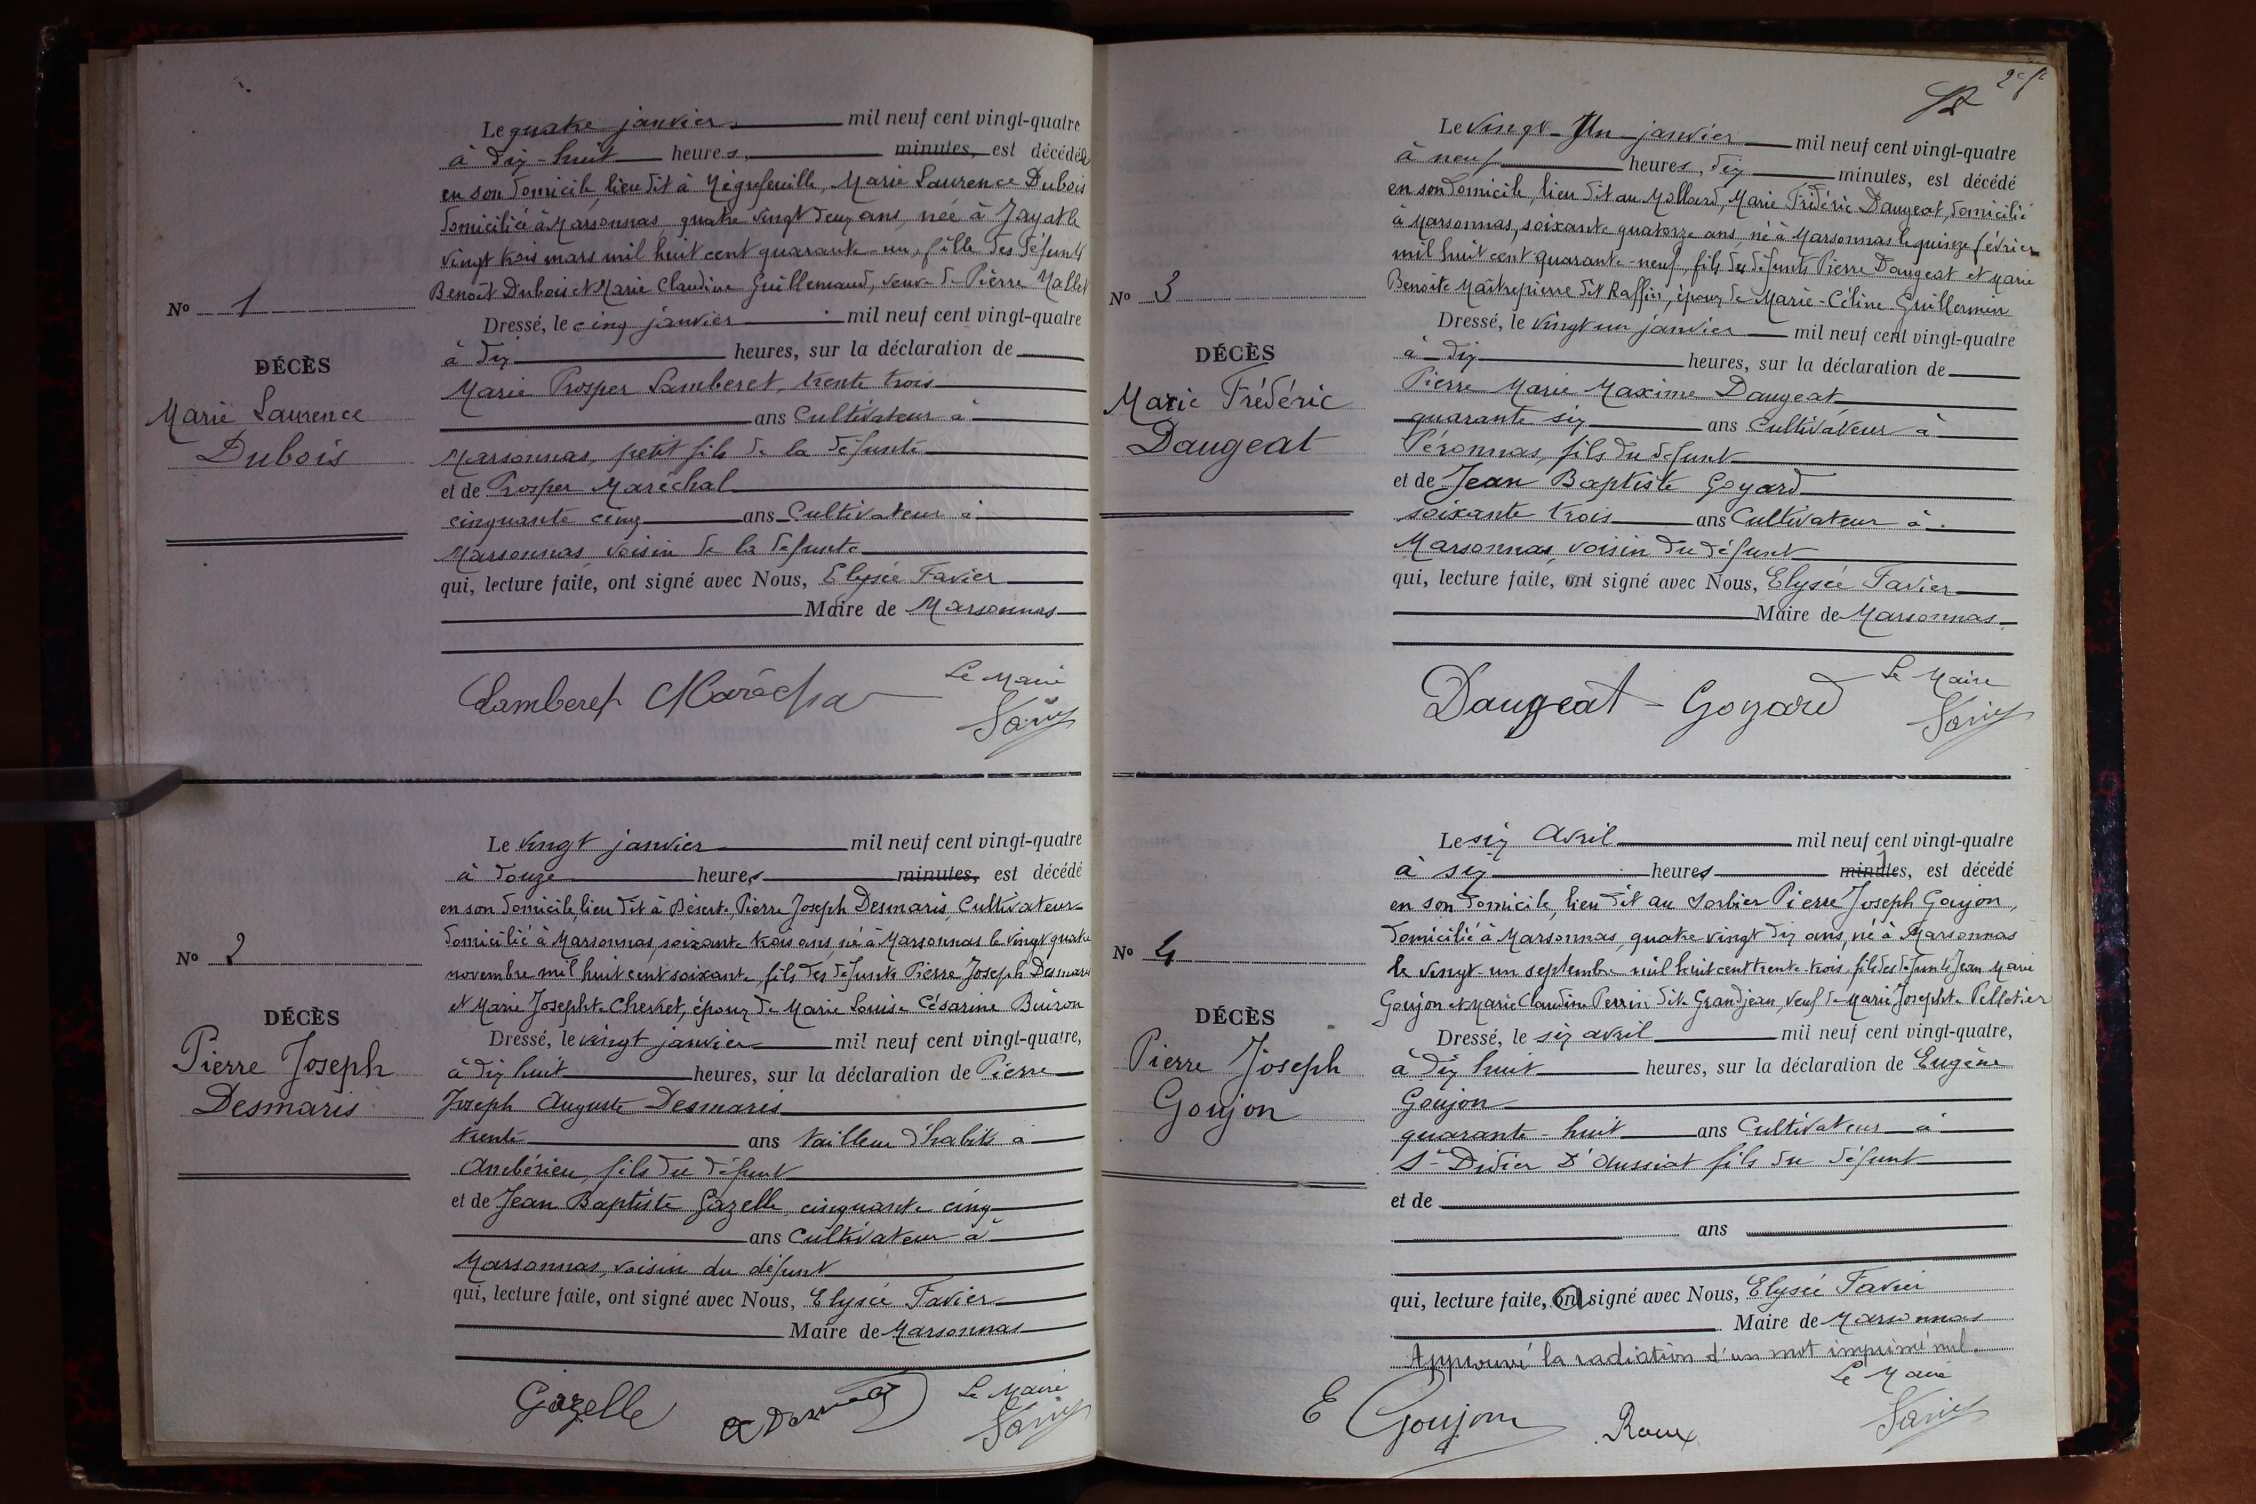 Le quatre janvier mil neuf cent vingt-quatre
à dix-huit heures, minutes, est décédée
en son domicile lieu dit à Négrefeuille, Marie Laurence Dubois
domiciliée à Marsonnas, quatre vingt deux ans, née à Jayat le
vingt trois mars mil huit cent quarante-un, fille des défunts
Benoît Dubois et Marie Claudine Guillemaud, veuve de Pierre Mallet
No 1
Dressé, le cinq janvier mil neuf cent vingt-quatre
à dix heures, sur la déclaration de
DÉCÈS
Marie Prosper Lamberet, trente trois
Marie Laurence
ans Cultivateur à
Dubois
Marsonnas, petit fils de la défunte
et de Prosper Maréchal
cinquante cinq ans Cultivateur à
Marsonnas, voisin de la défunte
qui, lecture faite, ont signé avec Nous, Elysée Favier
Maire de Marsonnas
Lamberet Marécha
Le Maire
Favier
Le vingt janvier mil neuf cent vingt-quatre
à douze heures minutes, est décédé
en son domicile lieu dit à Déserte, Pierre Joseph Desmaris, Cultivateur
domicilié à Marsonnas, soixante trois ans, né à Marsonnas le vingt quatre
No 2
novembre mil huit cent soixante, fils des défunts Pierre Joseph Desmaris
et Marie Josephte Chevret, époux de Marie Louise Césarine Buiron
DÉCÈS
Dressé, le vingt janvier mil neuf cent vingt-quatre,
Pierre Joseph
à dix huit heures, sur la déclaration de Pierre
Desmaris
Joseph Auguste Desmaris
trente ans tailleur d'habits à
Ambérieu, fils du défunt
et de Jean Baptiste Gazelle, cinquante cinq
ans Cultivateur à
Marsonnas, voisin du défunt
qui, lecture faite, ont signé avec Nous, Elysée Favier
Maire de Marsonnas
Gazelle
Le Maire
Favier
Le vingt-Un janvier mil neuf cent vingt-quatre
à neuf heures, dix minutes, est décédé
en son domicile, lieu dit au Mollard, Marie Frédéric Daugeat, domicilié
à Marsonnas, soixante quatorze ans, né à Marsonnas le quinze février
mil huit cent quarante-neuf, fils des défunts Pierre Daugeat et Marie
No 3
Benoite Maîtrepierre dit Raffin, époux de Marie-Céline Guillermin
Dressé, le vingt un janvier mil neuf cent vingt-quatre
DÉCÈS
à dix heures, sur la déclaration de
Marie Frédéric
Pierre Marie Maxime Daugeat
Daugeat
quarante six ans Cultivateur à
Péronnas, fils du défunt
et de Jean Baptiste Goyard
soixante trois ans Cultivateur à
Marsonnas, voisin du défunt
qui, lecture faite, ont signé avec Nous, Elysée Favier
Maire de Marsonnas
Daugeat - Goyard
Le Maire
Favier
Le six Avril mil neuf cent vingt-quatre
à six heures minutes, est décédé
en son domicile, lieu dit au Sorbier Pierre Joseph Goujon,
domicilié à Marsonnas, quatre vingt dix ans, né à Marsonnas
No 4
le vingt-un septembre mil huit cent trente-trois, fils des défunts Jean Marie
Goujon et Marie Claudine Perrin dite Grandjean, veuf de Marie Josephte Pelletier
DÉCÈS
Dressé, le six avril mil neuf cent vingt-quatre,
Pierre Joseph
à dix huit heures, sur la déclaration de Eugène
Goujon
Goujon
quarante-huit ans Cultivateur à
St Didier D'Aussiat fils du défunt
et de
ans
qui, lecture faite, ont signé avec Nous, Elysée Favier
Maire de Marsonnas
Approuvé la radiation d'un mot imprimé nul.
E Goujon Roux
Le Maire
Favier